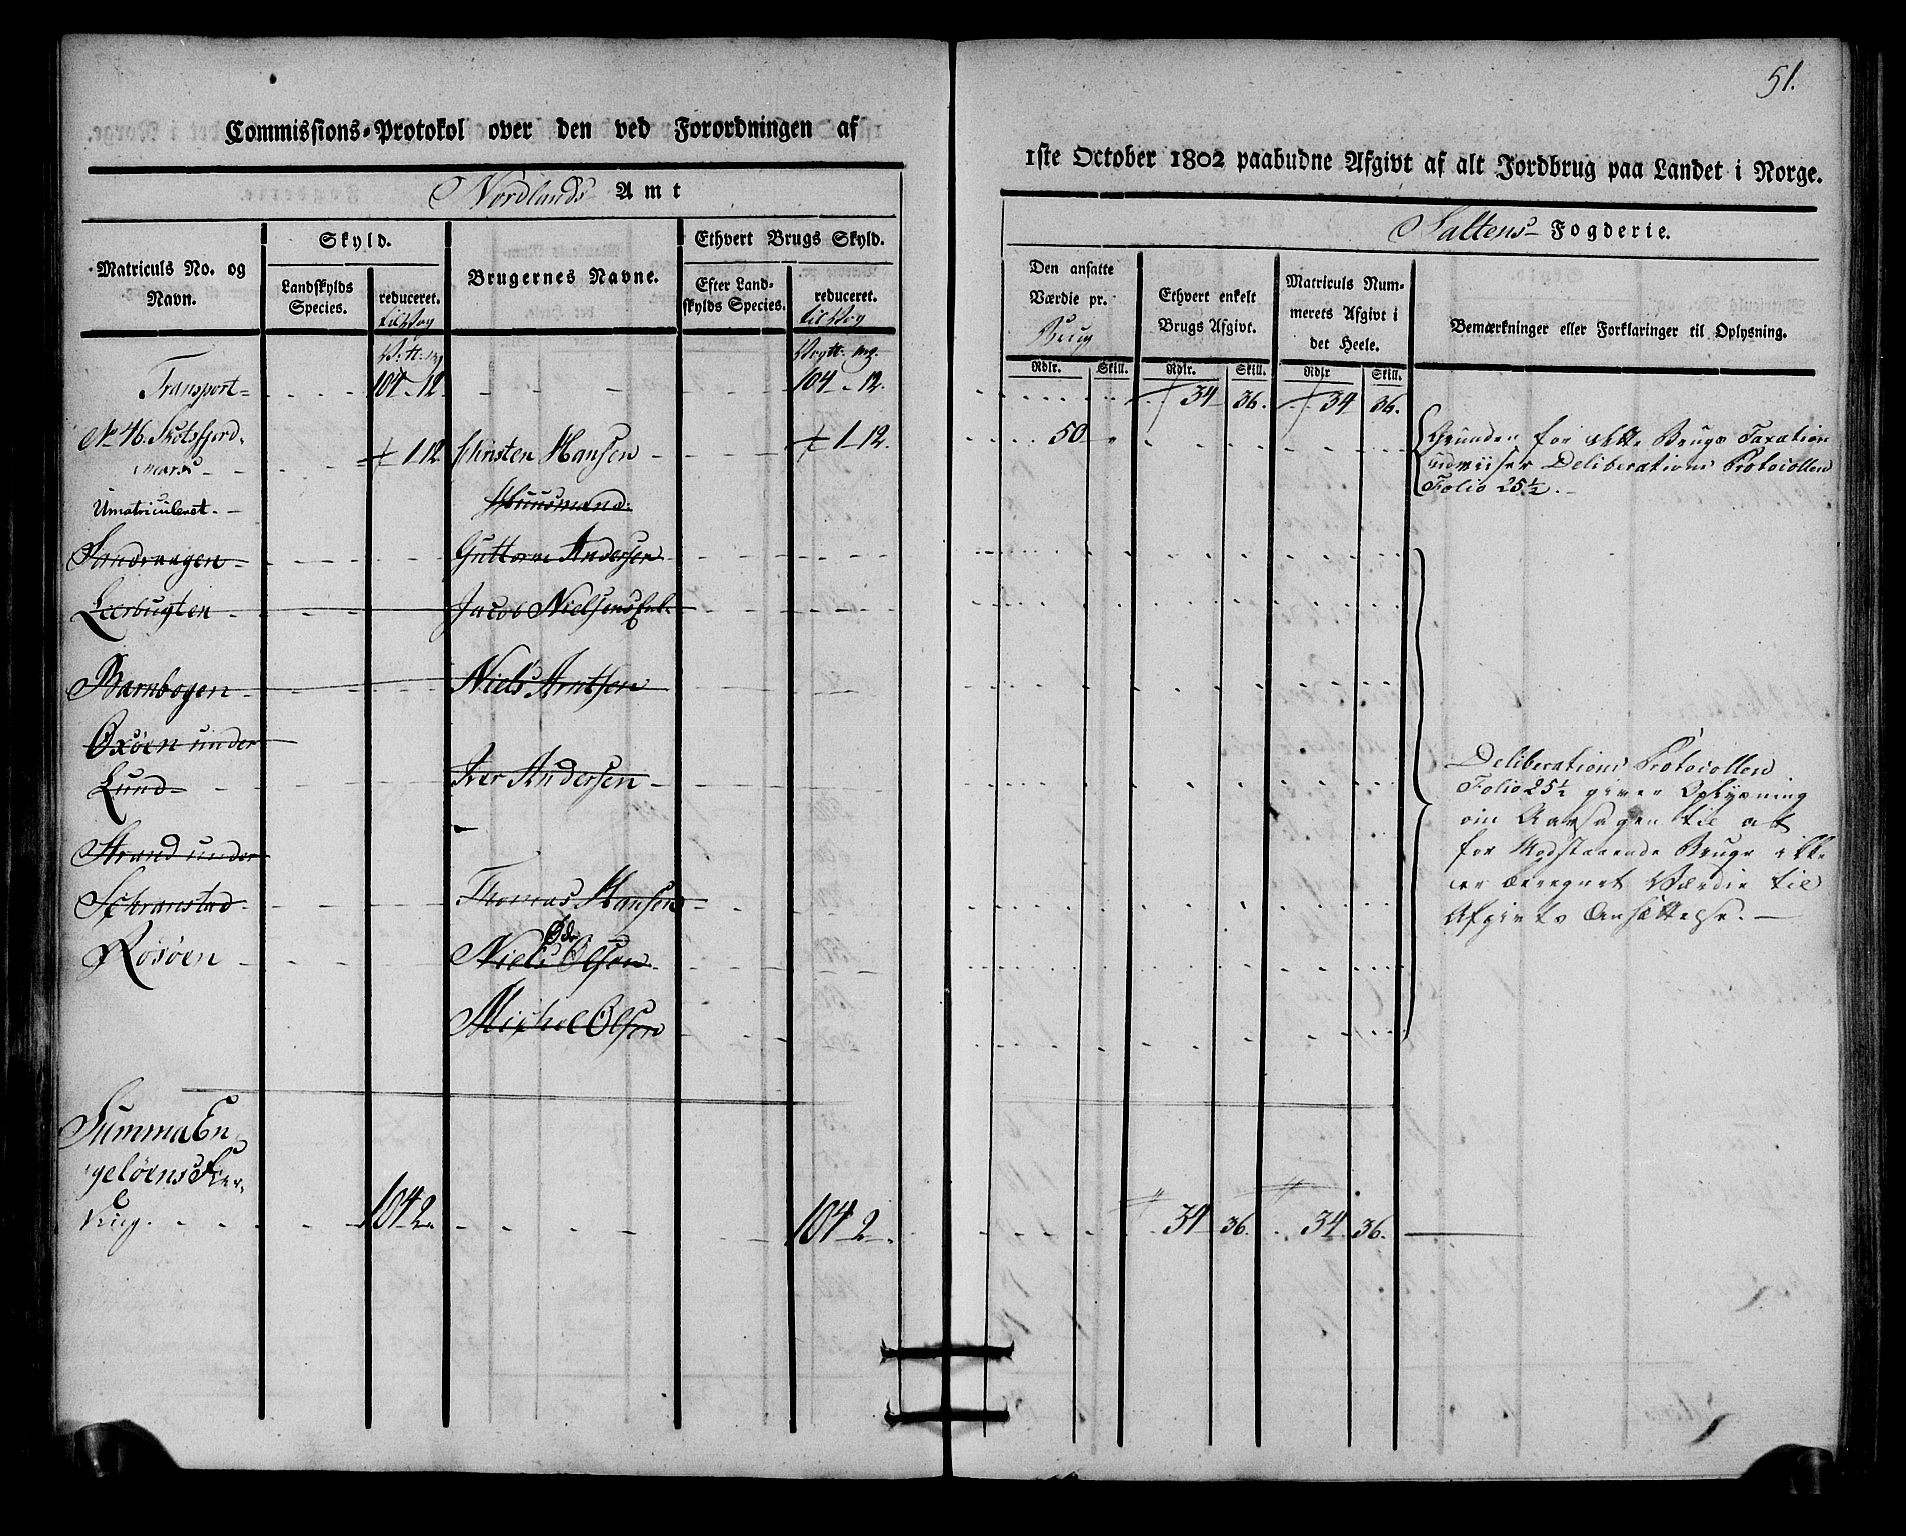 51.
Commissions-Protokol over den ved Forordningen af
1ste October 1802 paabudne Afgivt af alt Jordbrug paa Landet i Norge.
Nordlands Amt
Saltens Fogderie.
Matriculs No. og Navn.
Skyld.
Landskylds Species.
reduceret.
til Vog
Brugernes Navne.
Ethvert Brugs Skyld.
Efter Landskylds Species.
reduceret.
til Vog
Den ansatte Værdie pr.
Brug
Ethvert enkelt Brugs Afgivt.
Matriculs Nummerets Afgivt i det Heele.
Bemærkninger eller Forklaringer til Oplysning.
Rdlr. Skill. Rdlr. Skill. Rdlr Skill.
Transport 104 - 12. 104 - 12. 34 36. 34 36.
No 46. Skotsfjord 1 12. Christen Hansen 1 12. 50
Umatriculeret. Huusmænd:
Grunden for dette Brugs Taxation
udviiser Deliberations Protocollen
Folio 25½.
Sandvaagen Guttorm Andersen
Leerbugten Jacob Nielsens Enk.
Barnbogen Niels Arntsen
Oxøen under
Lund Iver Andersen
Strand under
Schranstad Thomas Hansen
Rosøen Niels Olsen
Michel Olsen
Deliberations Protocollen
Folio 25½ giver Oplysning
om Aarsagen til at
for Modstaaende Bruge ikke
er beregnet Værdie til
Afgivts Ansættelse.
Summa En-
geløens Fier-
ding 104 2 104 2 34 36. 34 36.